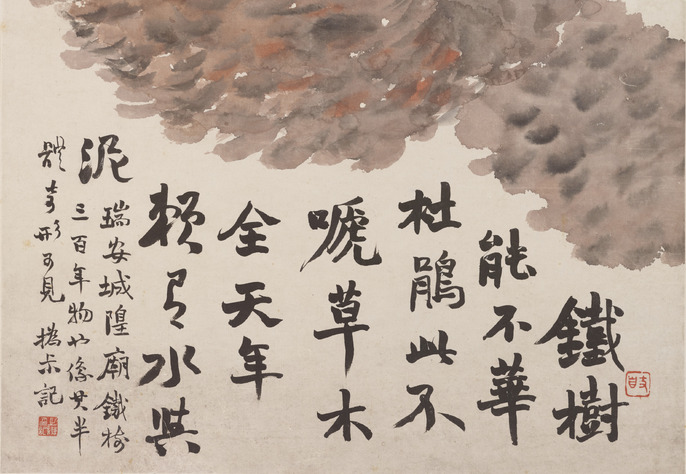 鐵樹
能不華
杜鵑此不
嗁草木
全天年
賴有水與
泥
瑞安城隍廟鐵樹
三百年物也係其半
體奇形可見 撝尗記